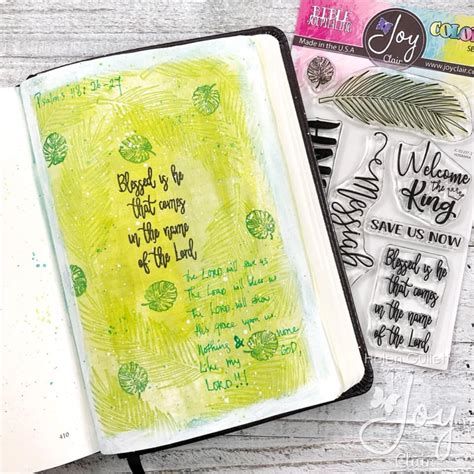 Psalms 118: 26-27
Blessed is he
that comes
in the name
of the Lord
The LORD will save us
The LORD will bless us
The LORD will show
His grace upon us
Nothing & none
Like my GOD
LORD!!!
410
BIBLE
JOURNALING
Made in the U.S.A
Joy
Clair
www.joyclair.com
Messiah
Welcome
the
King
SAVE US NOW
Blessed is he
that comes
in the name
of the Lord
Joy
Clair